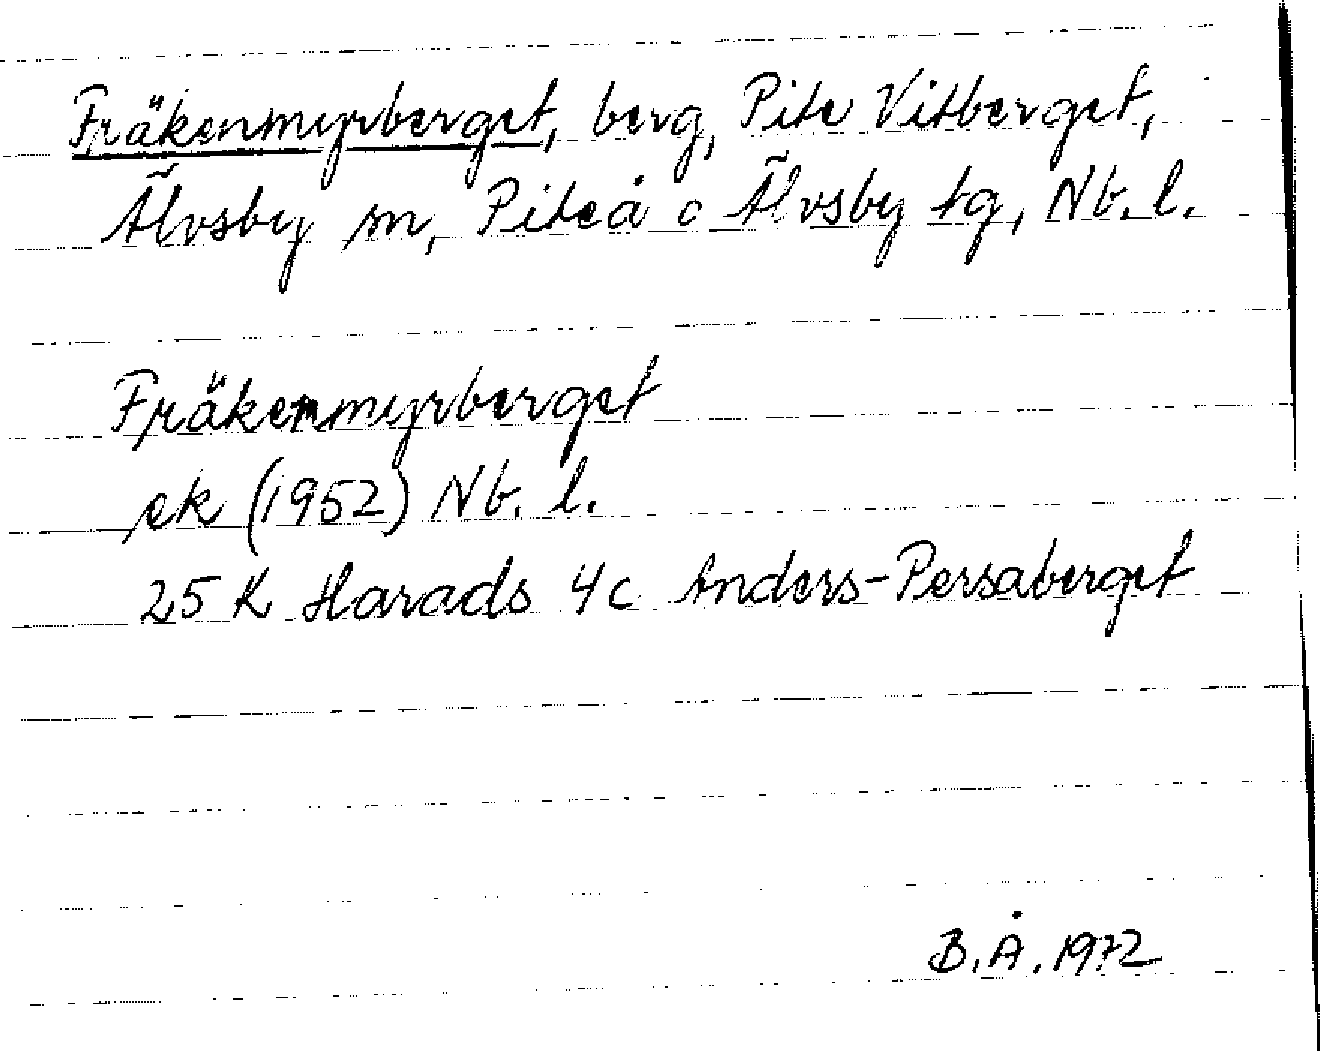 Fräkenmyrberget, berg, Pite Vitberget,
Älvsby sn, Piteå o Älvsby tg, Nb. l.
Fräkenmyrberget
ek (1952) Nb. l.
25 K Harads 4c Anders-Persaberget
B.Å. 1972